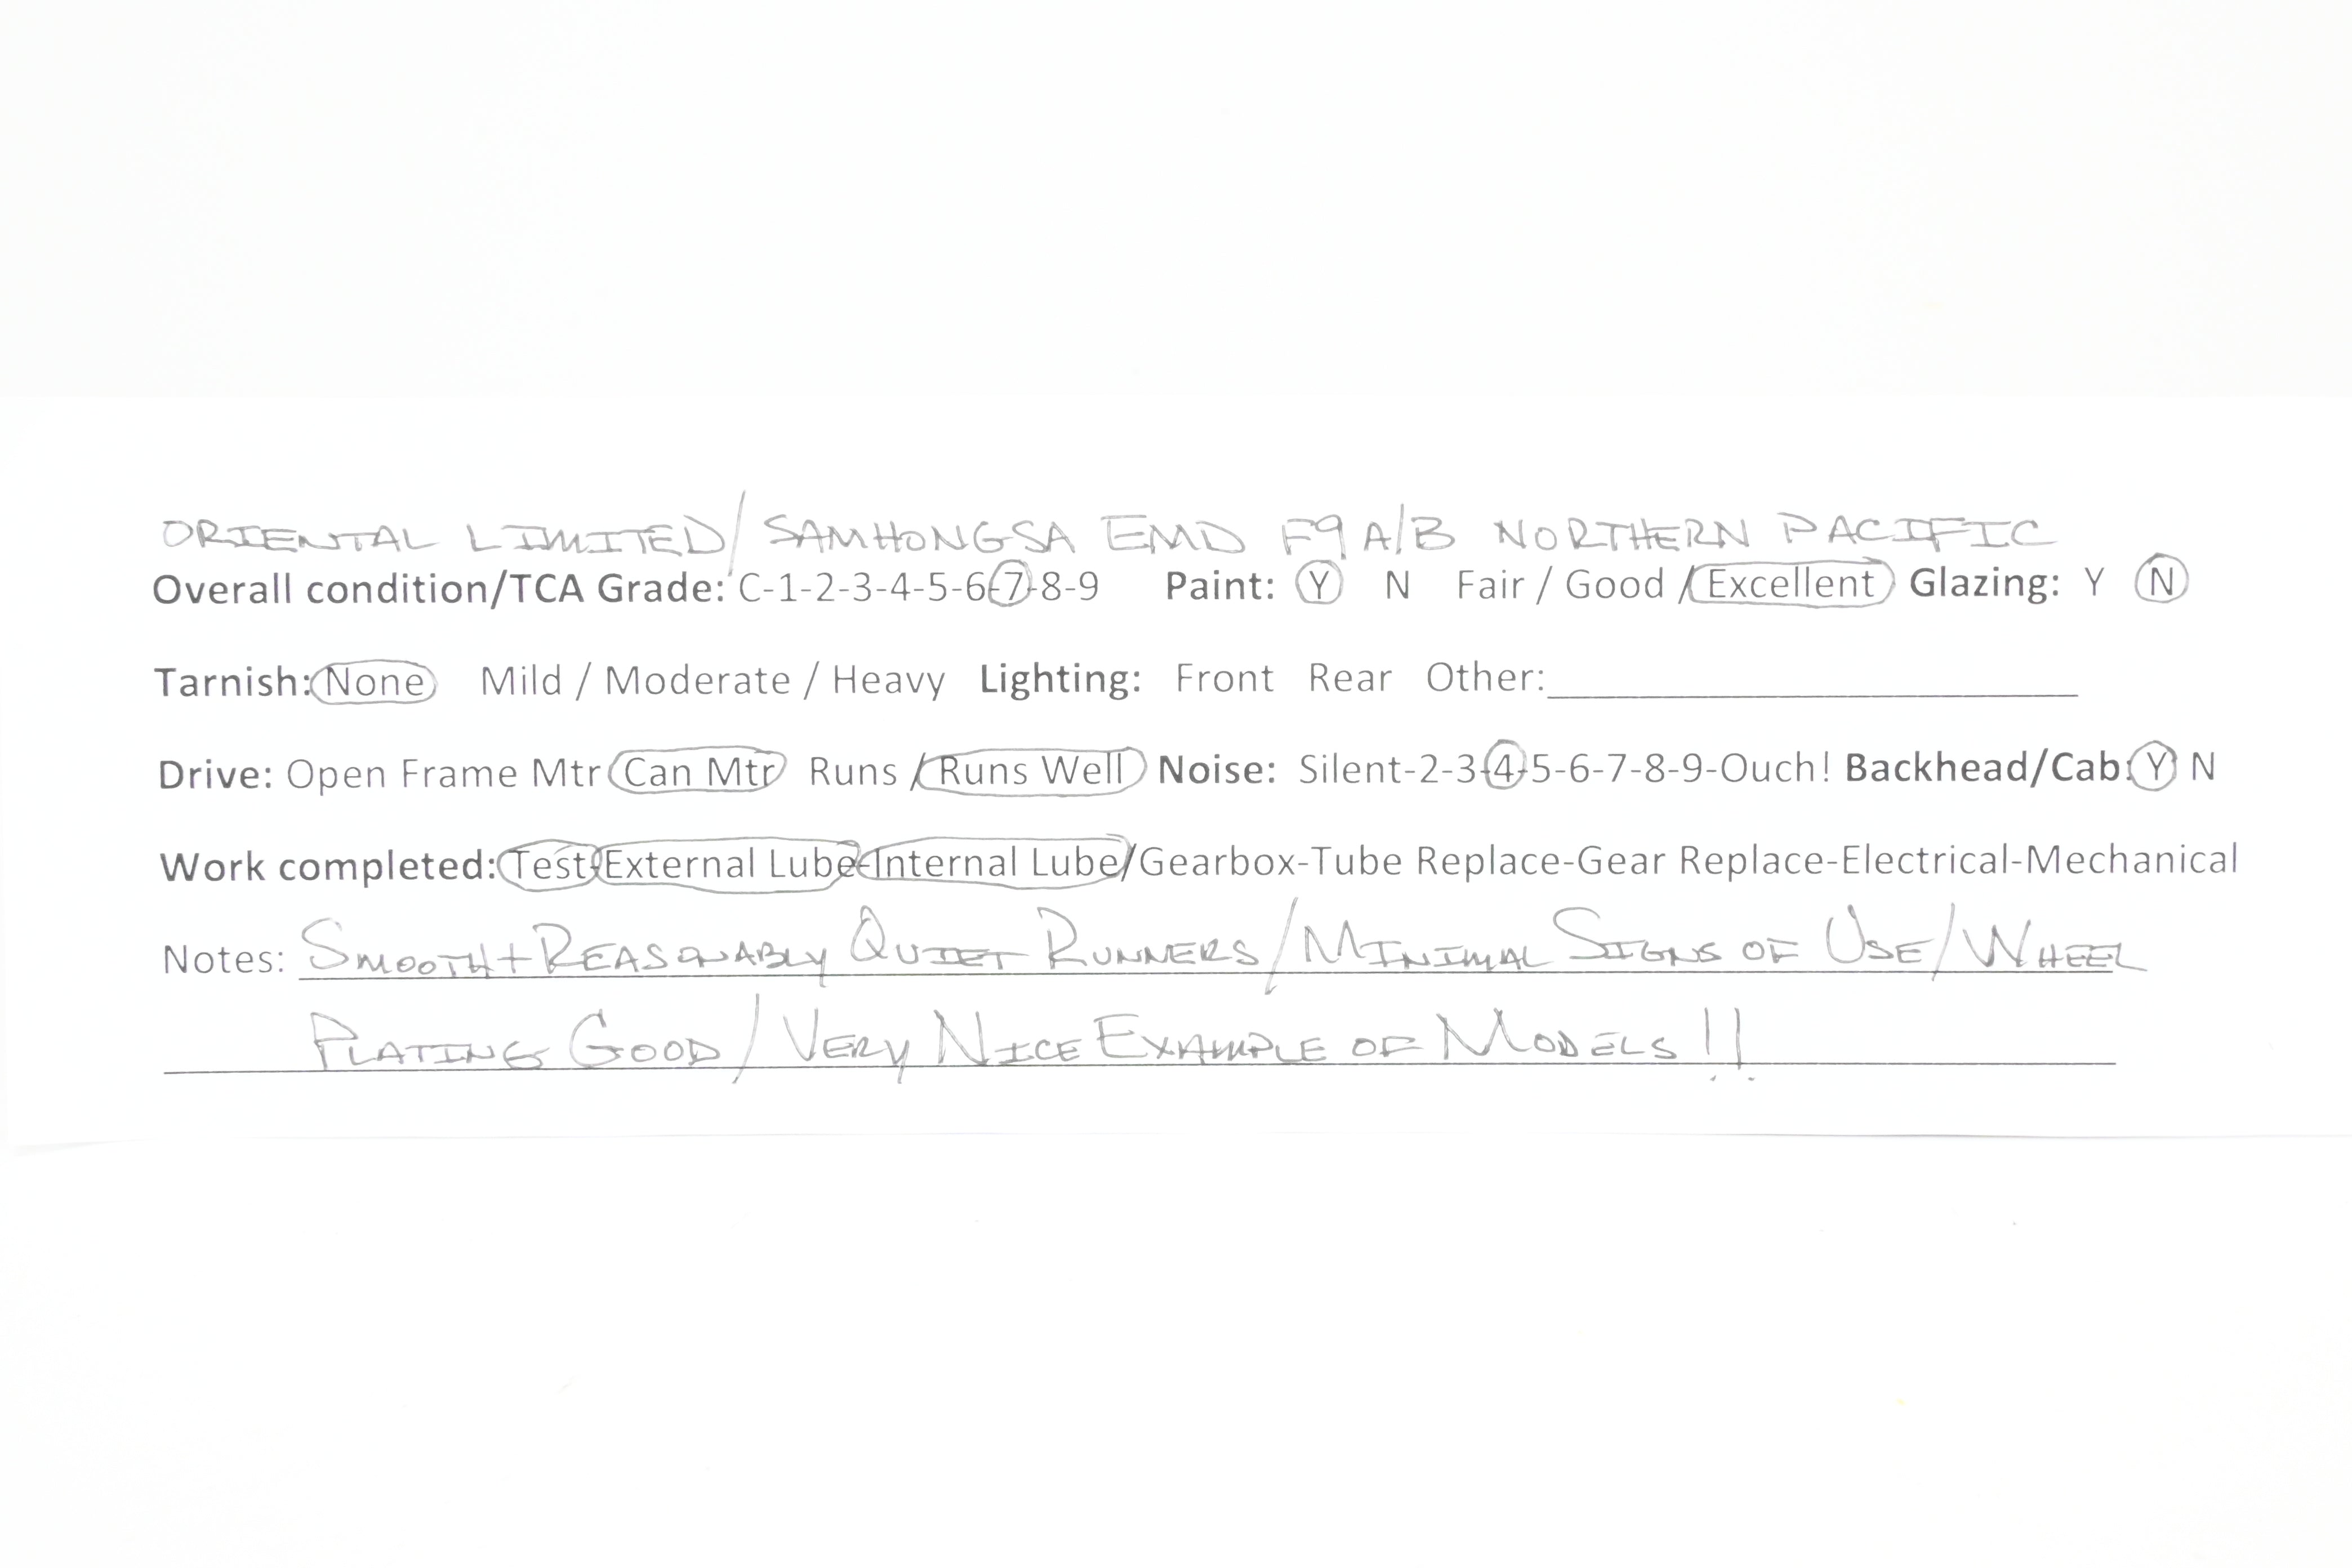 ORIENTAL LIMITED/SAMHONGSA EMD F9 A/B NORTHERN PACIFIC
Overall condition/TCA Grade: C-1-2-3-4-5-6-7-8-9 Paint: Y N Fair / Good / Excellent Glazing: Y N
Tarnish: None Mild / Moderate / Heavy Lighting: Front Rear Other:
Drive: Open Frame Mtr Can Mtr Runs / Runs Well Noise: Silent-2-3-4-5-6-7-8-9-Ouch! Backhead/Cab: Y N
Work completed: Test-External Lube-Internal Lube/Gearbox-Tube Replace-Gear Replace-Electrical-Mechanical
Notes: SMOOTH + REASONABLY QUIET RUNNERS/MINIMAL SIGNS OF USE/WHEEL
PLATING GOOD/VERY NICE EXAMPLE OF MODELS!!